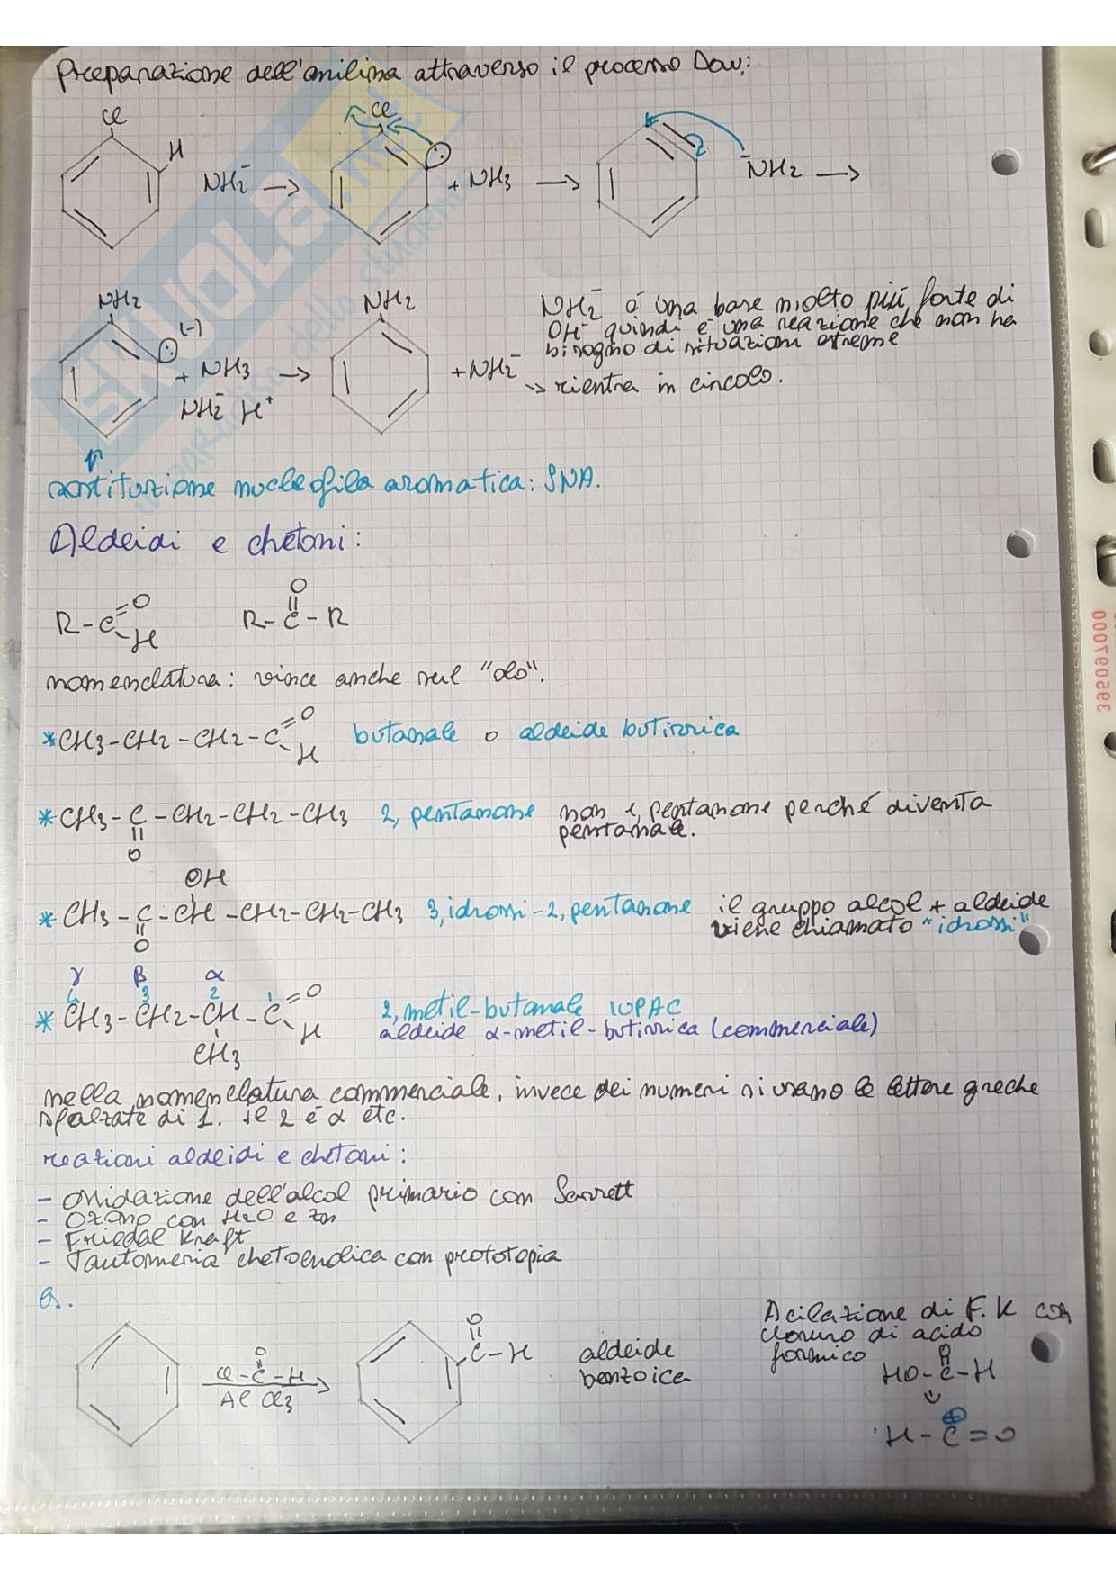 Preparazione dell'anilina attraverso il processo Dow:
Cl H NH2⁻ → Cl + NH3 → NH2⁻ →
NH2 (-) + NH3 → NH2 + NH2⁻
NH2⁻ H⁺
NH2⁻ è una base molto più forte di
OH⁻ quindi è una reazione che non ha
bisogno di situazioni estreme
→ rientra in circolo.
sostituzione nucleofila aromatica: SNA.
Aldeidi e chetoni:
R-C=O H
O
R-C-R
nomenclatura: vince anche sul "olo".
*CH3-CH2-CH2-C=O H butanale o aldeide butirrica
*CH3-C-CH2-CH2-CH3 2, pentanone non 1, pentanone perché diventa
O pentanale.
OH
*CH3-C-CH-CH2-CH2-CH3 3, idrossi-2, pentanone il gruppo alcol + aldeide
O viene chiamato "idrossi"
γ β α
4 3 2 1
*CH3-CH2-CH-C=O H 2, metil-butanale IUPAC
CH3 aldeide α-metil-butirrica (commerciale)
nella nomenclatura commerciale, invece dei numeri si usano le lettere greche
sfalzate di 1. se 2 è α etc.
reazioni aldeidi e chetoni:
- ossidazione dell'alcol primario con Sarrett
- Ozono con H2O e Zn
- Friedal Kraft
- Tautomeria chetoenolica con prototopia
es.
O
Cl-C-H
AlCl3
O
C-H
aldeide
benzoica
Acilazione di F.K con
cloruro di acido
formico
O
HO-C-H
⊕
H-C=O
SKUOLA.net
00070950395